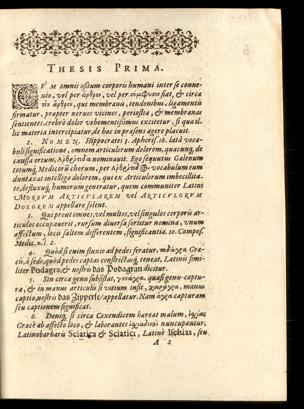 THESIS PRIMA.
CVM omnis ossium corporis humani inter se connexio, vel per ἄρθρον, vel per σύμφυσιν fiat, & circa
τὸ ἄρθρον, qui membranis, tendonibus, ligamentis
firmatur, propter nervos vicinos, periostia, & membranas
sentientes, crebrò dolor vehementissimus excitetur, si qua illic materia intercipiatur, de hoc in præsens agere placuit.
2. NOMEN. Hippocrates 3. Aphoris. 16. latâ vocabuli significatione, omnem articulorum dolorem, quacunq; de
causa ortum, ἀρθρῖτιν nominavit. Ego sequutus Galenum
totumq; Medicorũ chorum, per ἀρθρῖτιν vocabulum eum
duntaxat intelligo dolorem, qui ex Articulorum imbecillitate, defluxuq; humorum generatur, quem communiter Latini
MORBVM ARTICVLAREM vel ARTICVLORVM
DOLOREM appellare solent.
3. Qui prout omnes, vel multos, vel singulos corporis articulos occupaverit, rursum diversa sortitur nomina, unum
affectum, loci saltem differentem, significantia. 10. Compos.
Medic. n. l. 2.
4. Quòd si enim fluxio ad pedes feratur, ποδάγρα Græcis, à sede, quòd pedes captas constrictasq; teneat, Latinis similiter Podagra, & nostris das Podagran dicitur.
5. Sin circa genu subsistat, γονάγρα, quasi genu-captura, & in manus articulis si vitium insit, χειράγρα, manus
captio, nostris das Zipperle/ appellatur. Nam ἄγρα capturam
seu captionem significat.
6. Deniq; si circa Coxendicem hæreat malum, ἰσχιὰς
Græcè ab affecto loco, & laborantes ἰσχιαδικοὶ nuncupantur,
Latinobarbaris Sciatica & Sciatici, Latinè Ischias, seu
A 2